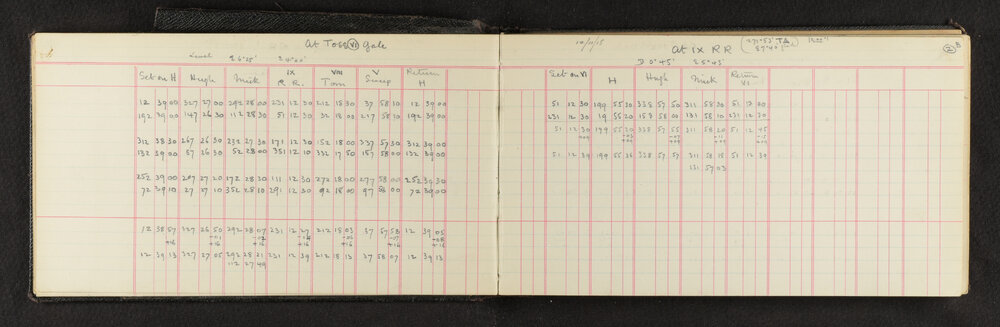 At Toss VI Gale
Level 26° 25' 24° 00'
Set on H Hugh Mick IX R.R. VIII Tom V Sweep Return H
12 39 00 327 27 00 292 28 00 231 12 30 212 18 30 37 58 10 12 39 00
192 39 00 147 26 30 112 28 00 51 12 30 32 18 00 217 58 10 192 39 00
312 38 30 267 26 30 232 27 30 171 12 30 152 18 00 337 57 30 312 39 00
132 39 00 87 26 30 52 28 00 351 12 10 332 17 50 157 58 00 132 39 00
252 39 00 207 27 20 172 28 30 111 12 30 272 18 00 277 58 00 252 38 30
72 39 10 27 27 10 352 28 10 291 12 30 92 18 00 97 58 00 72 39 00
12 38 57 327 26 50 292 28 07 231 12 27 212 18 03 37 57 58 12 39 05
+16 +16 +16 +16 +16 +16
12 39 13 327 27 05 292 28 21 231 12 39 212 18 13 37 58 07 12 39 13
112 27 49
10/11/15
At IX RR
2B
D 0° 45' 25° 43'
Set on VI H Hugh Mick Return VI
51 12 30 199 55 30 338 57 50 311 58 30 51 13 00
231 12 30 19 55 20 158 58 00 131 58 10 231 12 30
51 12 30 199 55 20 338 57 55 311 58 20 51 12 45
51 12 39 199 55 26 338 57 57 311 58 18 51 12 39
131 57 03